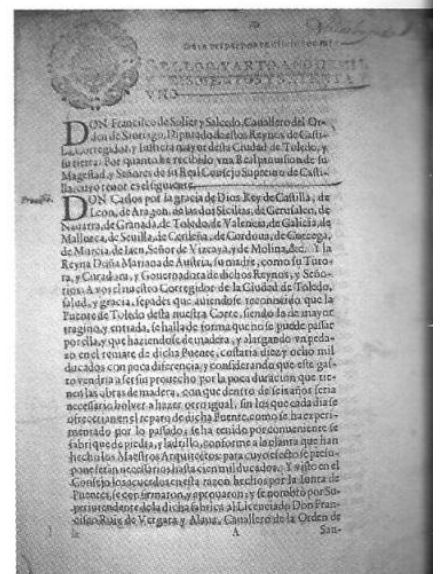 SELLO QVARTO, AÑO DE MIL
Y SEISCIENTOS Y SETENTA Y
VNO.
DON Francisco de Solier y Salcedo, Cauallero del Or-
den de Santiago, Diputado destos Reynos de Casti-
lla, Corregidor, y Iusticia mayor desta Ciudad de Toledo, y
su tierra: Por quanto he recibido vna Real prouision de su
Magestad, y Señores de su Real Consejo Supremo de Casti-
lla, cuyo tenor es el siguiente.
DON Carlos por la gracia de Dios Rey de Castilla, de
Leon, de Aragon, de las dos Sicilias, de Gerusalen, de
Nauarra, de Granada, de Toledo, de Valencia, de Galicia, de
Mallorca, de Seuilla, de Cerdeña, de Cordoua, de Corcega,
de Murcia, de Iaen, Señor de Vizcaya, y de Molina, &c. Y la
Reyna Doña Mariana de Austria, su madre, como su Tuto-
ra, y Curadora, y Gouernadora de dichos Reynos, y Seño-
rios: A vos el nuestro Corregidor de la Ciudad de Toledo,
salud, y gracia, sepades que auiendose reconocido, que la
Puente de Toledo desta nuestra Corte, siendo la de mayor
tragino, y entrada, se halla de forma que no se puede passar
por ella, y que haziendose de madera, y alargando vn peda-
zo en el remate de dicha Puente, costaria diez y ocho mil
ducados con poca diferencia, y considerando que este gas-
to vendria a ser sin prouecho por la poca duracion que tie-
nen las obras de madera, con que dentro de seis años seria
necessario bolver a hazer otro igual, sin los que cada dia se
ofrecerian en el reparo de dicha Puente, como se ha experi-
mentado por lo passado; se ha tenido por conueniente se
fabrique de piedra, y ladrillo, conforme a la planta que han
hecho los Maestros Arquitectos, para cuyo efecto se presu-
pone seràn necessarios hasta cien mil ducados. Y visto en el
Consejo los acuerdos en esta razon hechos por la Iunta de
Puentes, se confirmaron, y aprouaron, y se nombrò por Su-
perintendente de la dicha fabrica al Licenciado Don Fran-
cisco Ruiz de Vergara y Alaua, Cauallero de la Orden de
A San-